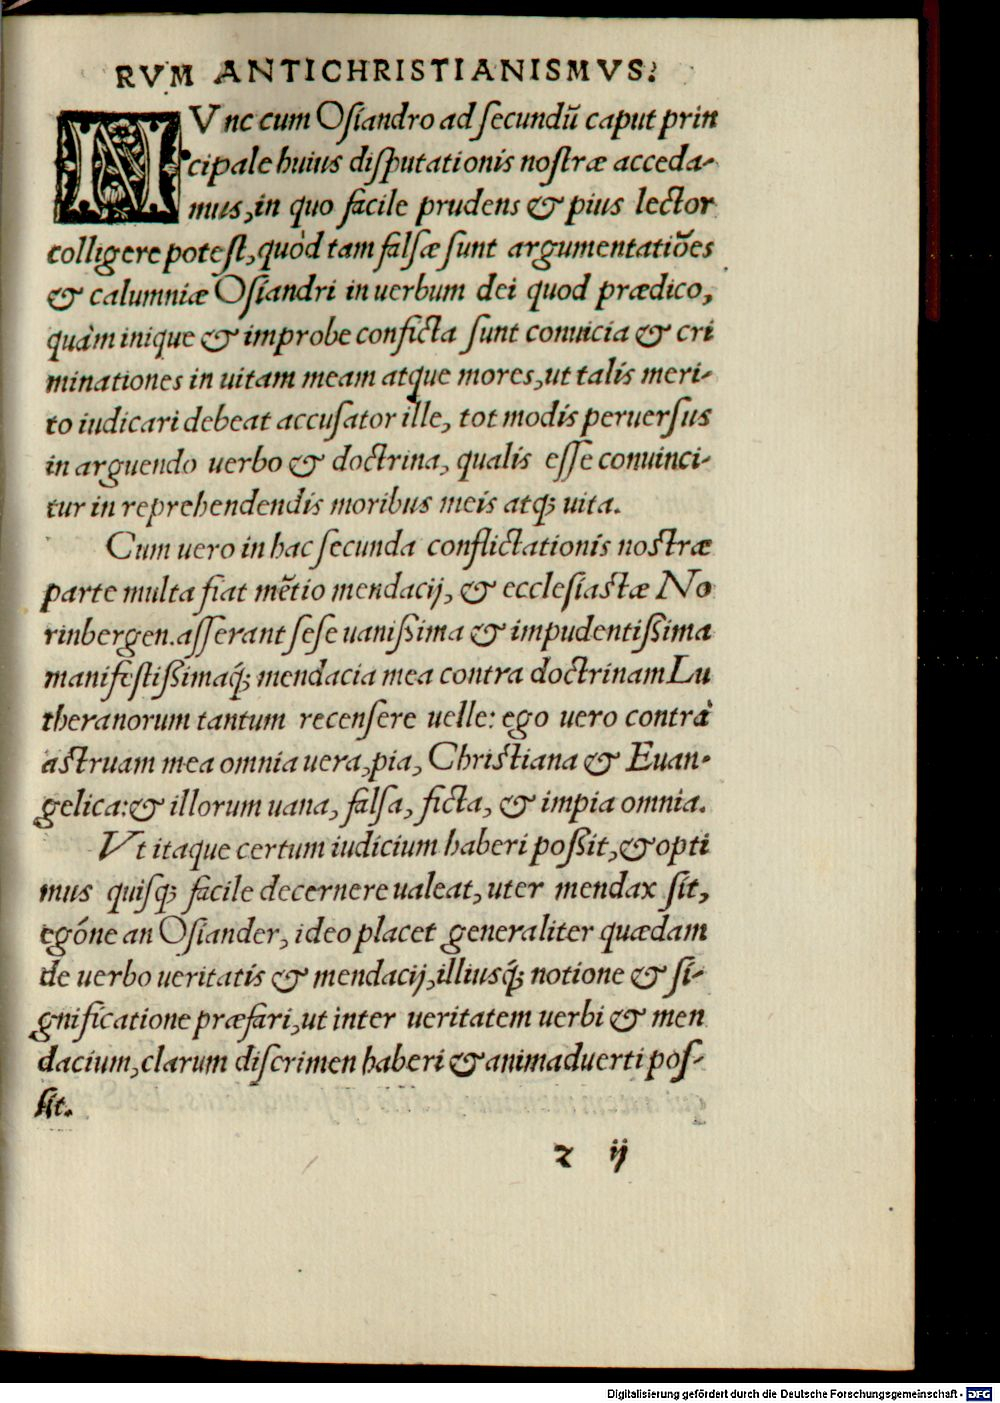 RVM ANTICHRISTIANISMVS.
NVnc cum Oſiandro ad ſecundũ caput prin
cipale huius diſputationis noſtræ acceda-
mus, in quo facile prudens & pius lector
colligere poteſt, quòd tam falſæ ſunt argumentatiões
& calumniæ Oſiandri in uerbum dei quod prædico,
quàm inique & improbe conficta ſunt conuicia & cri
minationes in uitam meam atque mores, ut talis meri-
to iudicari debeat accuſator ille, tot modis peruerſus
in arguendo uerbo & doctrina, qualis eſſe conuinci-
tur in reprehendendis moribus meis atq; uita.
Cum uero in hac ſecunda conflictationis noſtræ
parte multa fiat mẽtio mendacij, & eccleſiaſtæ No
rinbergen. aſſerant ſeſe uaniſſima & impudentiſſima
manifeſtiſſimaq́; mendacia mea contra doctrinam Lu
theranorum tantum recenſere uelle: ego uero contrà
aſtruam mea omnia uera, pia, Chriſtiana & Euan-
gelica: & illorum uana, falſa, ficta, & impia omnia.
Vt itaque certum iudicium haberi poßit, & opti
mus quiſq; facile decernere ualeat, uter mendax ſit,
egóne an Oſiander, ideo placet generaliter quædam
de uerbo ueritatis & mendacij, illiusq́; notione & ſi-
gnificatione præfari, ut inter ueritatem uerbi & men
dacium, clarum diſcrimen haberi & animaduerti poſ-
ſit.
z ij
Digitalisierung gefördert durch die Deutsche Forschungsgemeinschaft - DFG